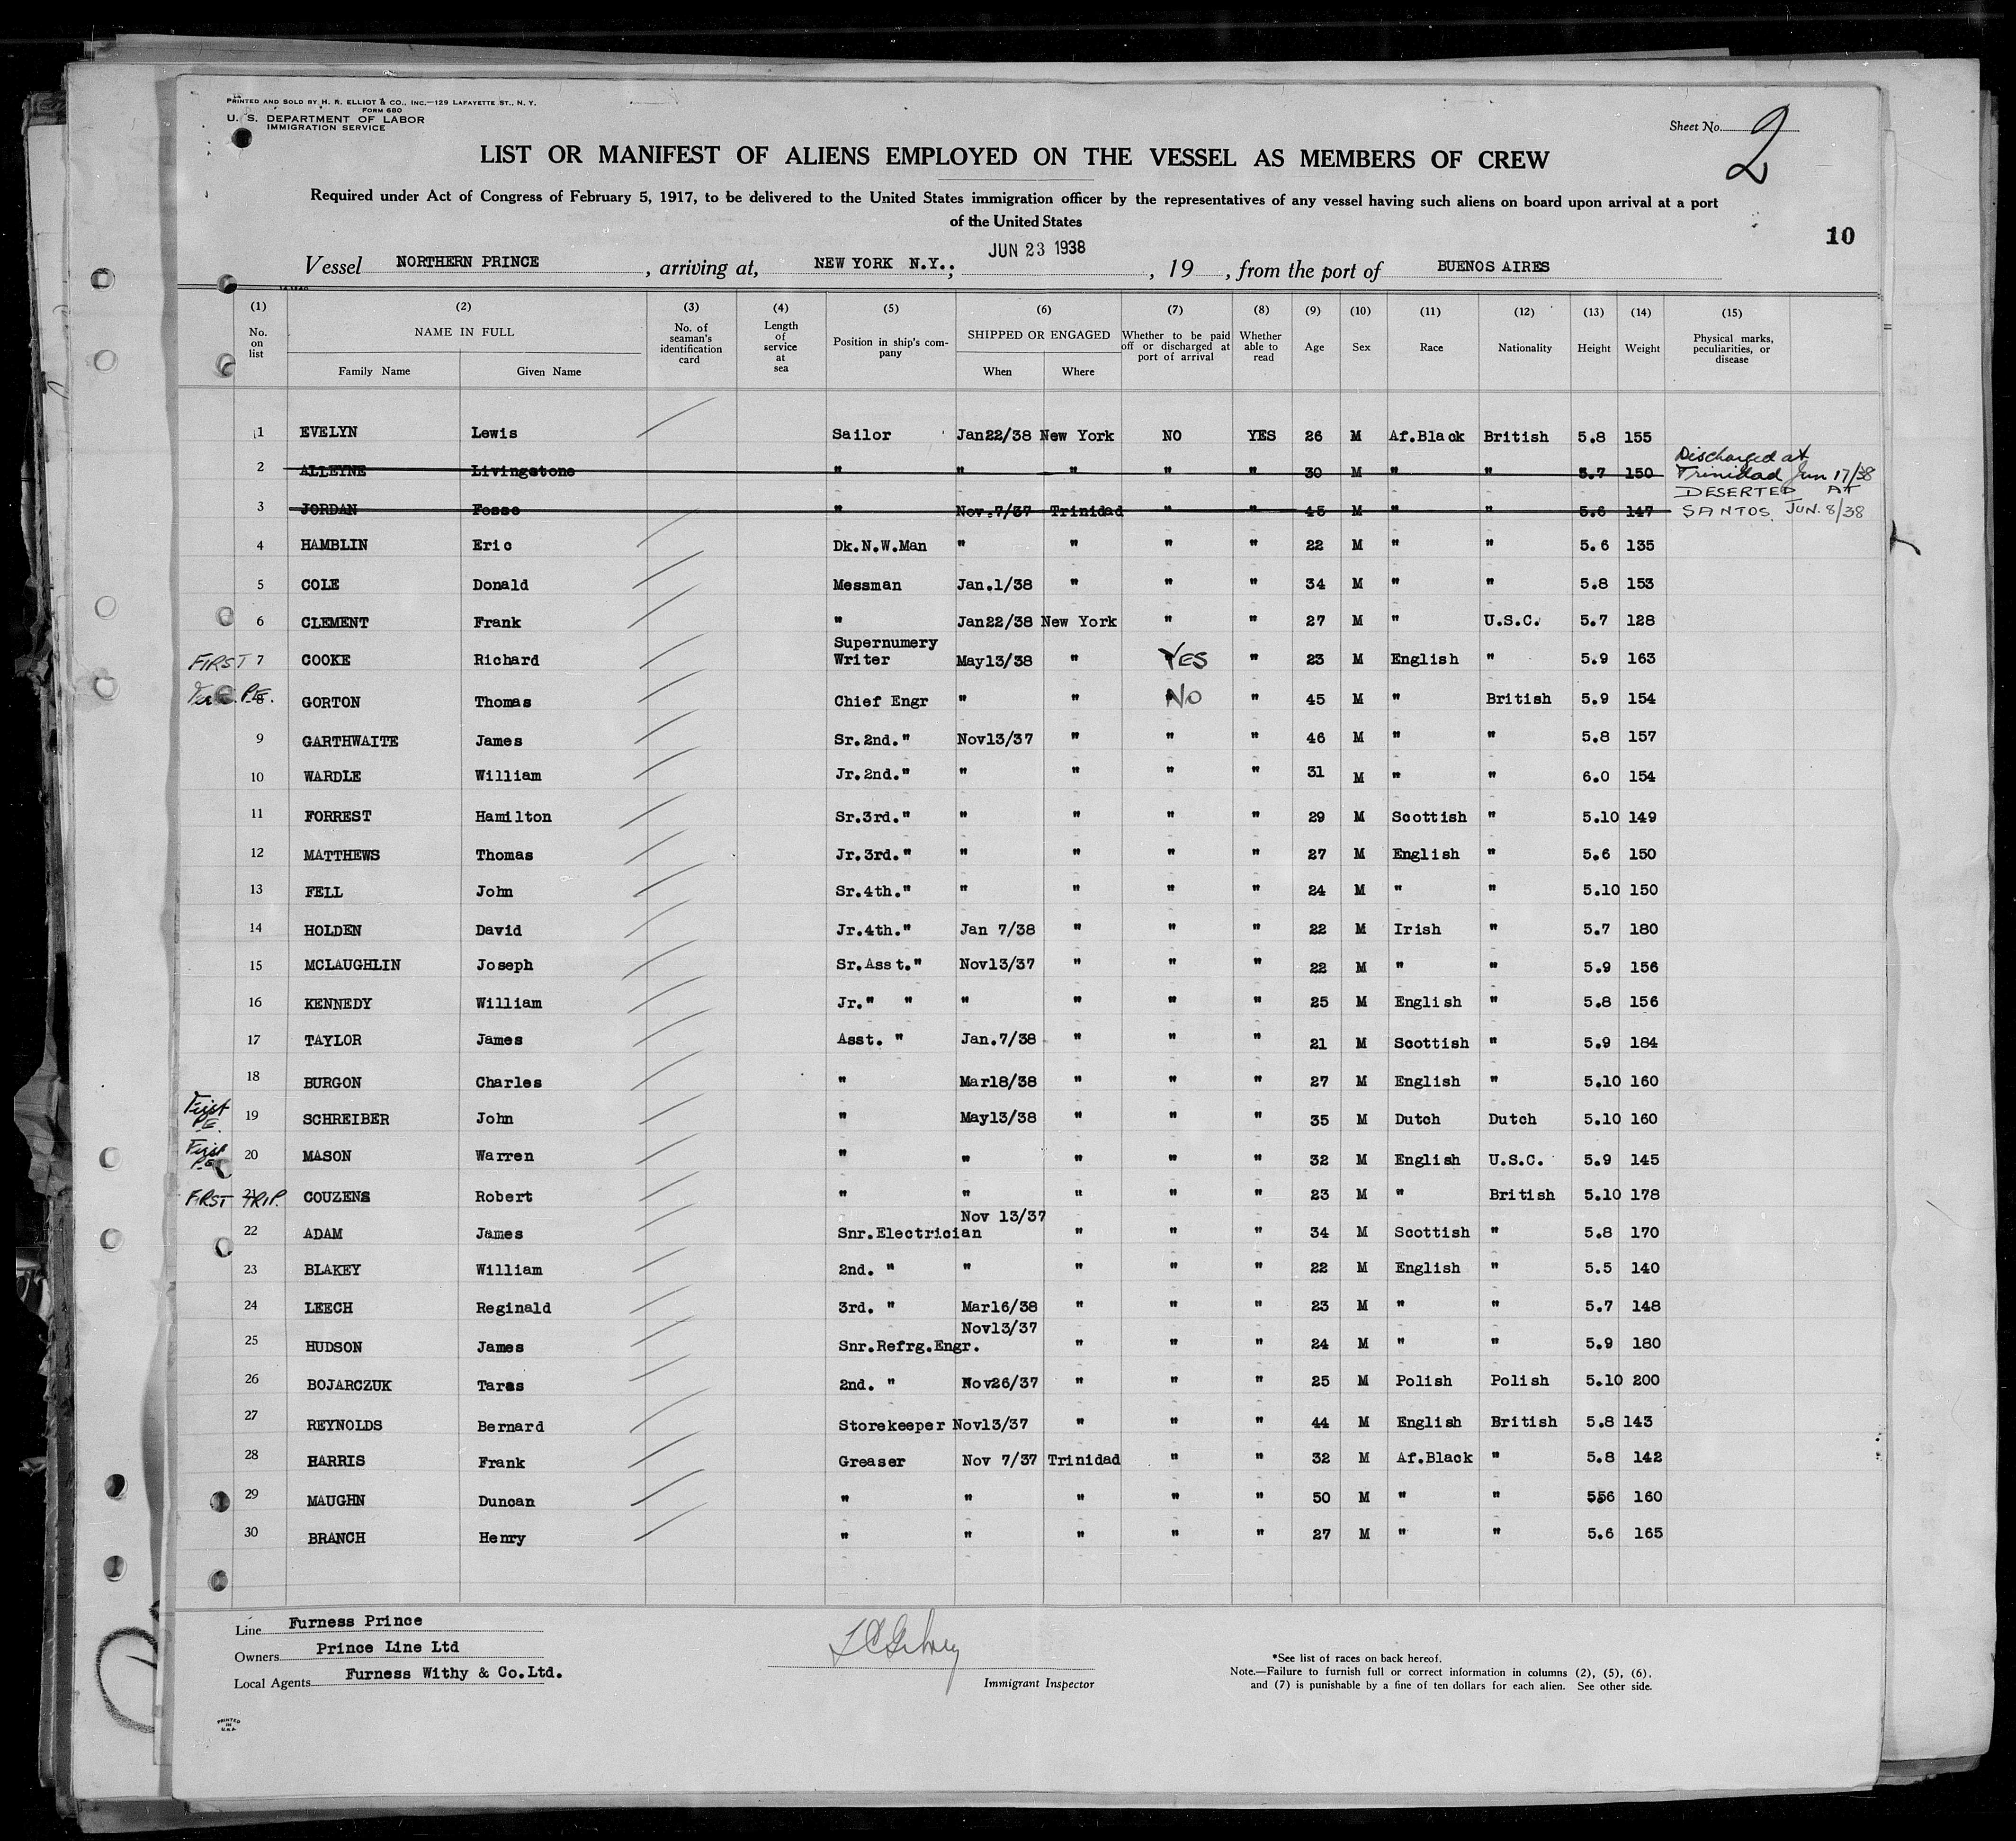 PRINTED AND SOLD BY H. R. ELLIOT & CO., INC.—129 LAFAYETTE ST., N. Y.
FORM 680
U. S. DEPARTMENT OF LABOR
IMMIGRATION SERVICE
Sheet No. 2
LIST OR MANIFEST OF ALIENS EMPLOYED ON THE VESSEL AS MEMBERS OF CREW
Required under Act of Congress of February 5, 1917, to be delivered to the United States immigration officer by the representatives of any vessel having such aliens on board upon arrival at a port
of the United States
10
Vessel NORTHERN PRINCE, arriving at, NEW YORK N.Y.; JUN 23 1938, 19 , from the port of BUENOS AIRES
(1) (2) (3) (4) (5) (6) (7) (8) (9) (10) (11) (12) (13) (14) (15)
No. on list NAME IN FULL No. of seaman's identification card Length of service at sea Position in ship's company SHIPPED OR ENGAGED Whether to be paid off or discharged at port of arrival Whether able to read Age Sex Race Nationality Height Weight Physical marks, peculiarities, or disease
Family Name Given Name When Where
1 EVELYN Lewis Sailor Jan22/38 New York NO YES 26 M Af.Black British 5.8 155
2 ALLEYNE Livingstone " " " " " 30 M " " 5.7 150 Discharged at Trinidad Jun 17/38
3 JORDAN Fosso " Nov.7/37 Trinidad " " 45 M " " 5.6 147 DESERTED AT SANTOS. JUN. 8/38
4 HAMBLIN Eric Dk.N.W.Man " " " " 22 M " " 5.6 135
5 COLE Donald Messman Jan.1/38 " " " 34 M " " 5.8 153
6 CLEMENT Frank " Jan22/38 New York " " 27 M " U.S.C. 5.7 128
FIRST 7 COOKE Richard Supernumery Writer May13/38 " YES " 23 M English " 5.9 163
P.E. 8 GORTON Thomas Chief Engr " " NO " 45 M " British 5.9 154
9 GARTHWAITE James Sr.2nd." Nov13/37 " " " 46 M " " 5.8 157
10 WARDLE William Jr.2nd." " " " " 31 M " " 6.0 154
11 FORREST Hamilton Sr.3rd." " " " " 29 M Scottish " 5.10 149
12 MATTHEWS Thomas Jr.3rd." " " " " 27 M English " 5.6 150
13 FELL John Sr.4th." " " " " 24 M " " 5.10 150
14 HOLDEN David Jr.4th." Jan 7/38 " " " 22 M Irish " 5.7 180
15 MCLAUGHLIN Joseph Sr.Asst." Nov13/37 " " " 22 M " " 5.9 156
16 KENNEDY William Jr." " " " " " 25 M English " 5.8 156
17 TAYLOR James Asst. " Jan.7/38 " " " 21 M Scottish " 5.9 184
18 BURGON Charles " Mar18/38 " " " 27 M English " 5.10 160
First P.E. 19 SCHREIBER John " May13/38 " " " 35 M Dutch Dutch 5.10 160
First P.E. 20 MASON Warren " " " " " 32 M English U.S.C. 5.9 145
FIRST TRIP. 21 COUZENS Robert " " " " " 23 M " British 5.10 178
22 ADAM James Snr.Electrician Nov 13/37 " " " 34 M Scottish " 5.8 170
23 BLAKEY William 2nd. " " " " " 22 M English " 5.5 140
24 LEECH Reginald 3rd. " Mar16/38 " " " 23 M " " 5.7 148
25 HUDSON James Snr.Refrg.Engr. Nov13/37 " " " 24 M " " 5.9 180
26 BOJARCZUK Taras 2nd. " Nov26/37 " " " 25 M Polish Polish 5.10 200
27 REYNOLDS Bernard Storekeeper Nov13/37 " " " 44 M English British 5.8 143
28 HARRIS Frank Greaser Nov 7/37 Trinidad " " 32 M Af.Black " 5.8 142
29 MAUGHN Duncan " " " " " 50 M " " 556 160
30 BRANCH Henry " " " " " 27 M " " 5.6 165
Line Furness Prince
Owners Prince Line Ltd
Local Agents Furness Withy & Co.Ltd.
Immigrant Inspector
*See list of races on back hereof.
Note.—Failure to furnish full or correct information in columns (2), (5), (6),
and (7) is punishable by a fine of ten dollars for each alien. See other side.
PRINTED
IN
U.S.A.